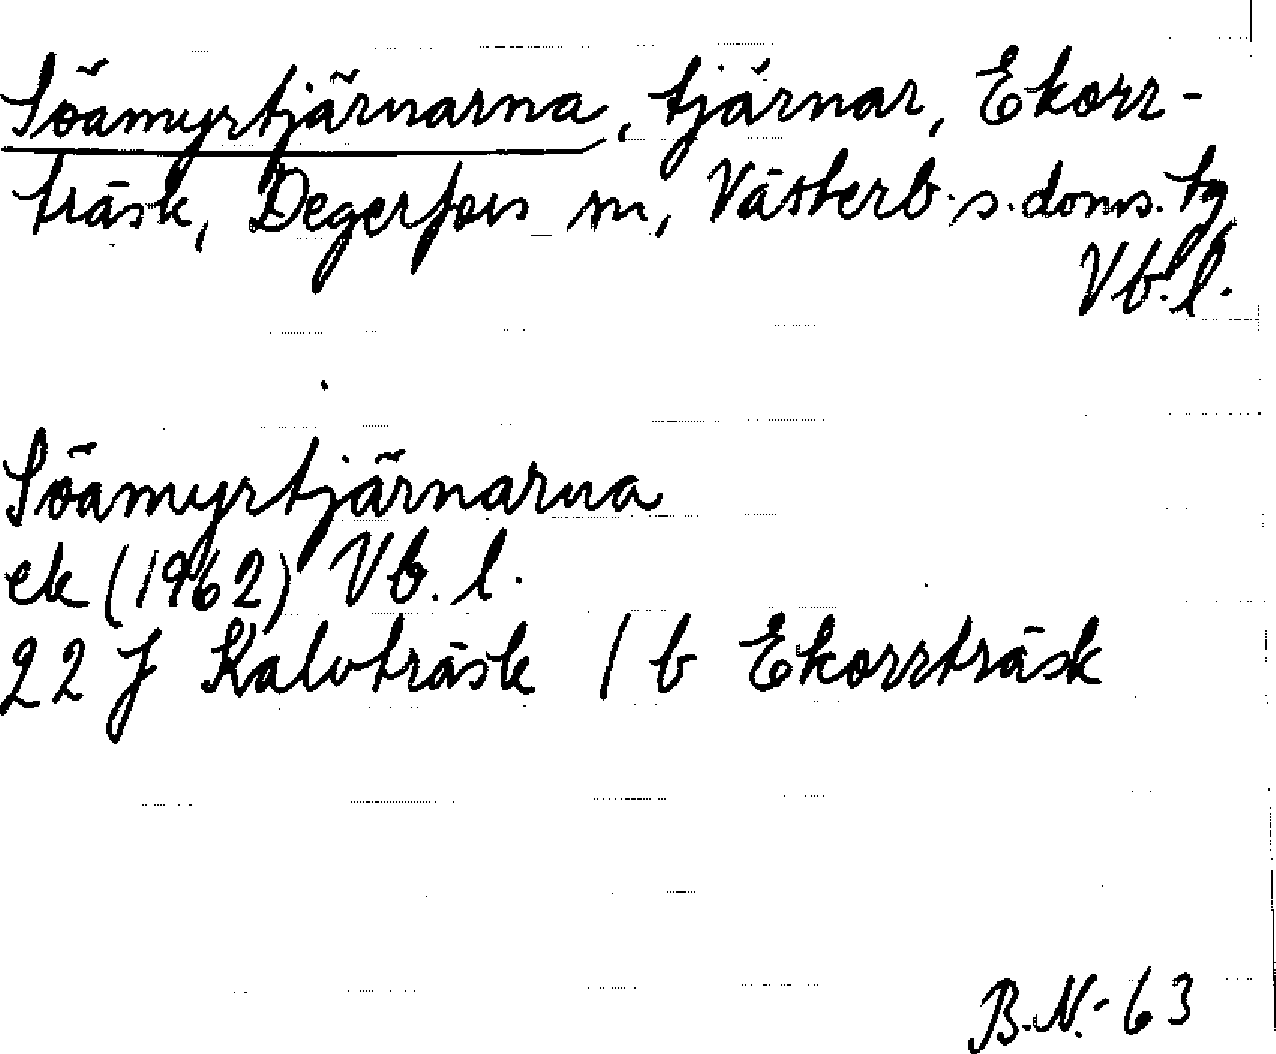 Söamyrtjärnarna, tjärnar, Ekorr-
träsk, Degerfors sn, Västerb. s. doms. tg
Vb. l.
Söamyrtjärnarna
ek (1962) Vb. l.
22 J Kalvträsk / b Ekorrträsk
B. N. - 63